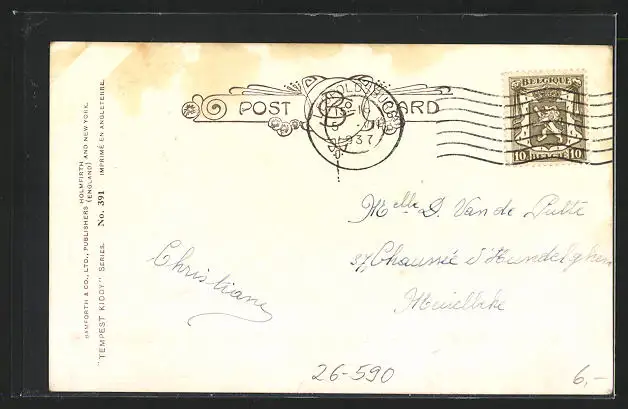 BAMFORTH & CO., LTD., PUBLISHERS HOLMFIRTH (ENGLAND) AND NEW YORK.
"TEMPEST KIDDY" SERIES. No. 391 IMPRIMÉ EN ANGLETERRE.
POST CARD
1937
BELGIQUE
10 BELGIE 10
Melle D. Van de Putte
37 Chaussée d'Hundelghem
Meirelbeke
Christiane
26-590
6,-